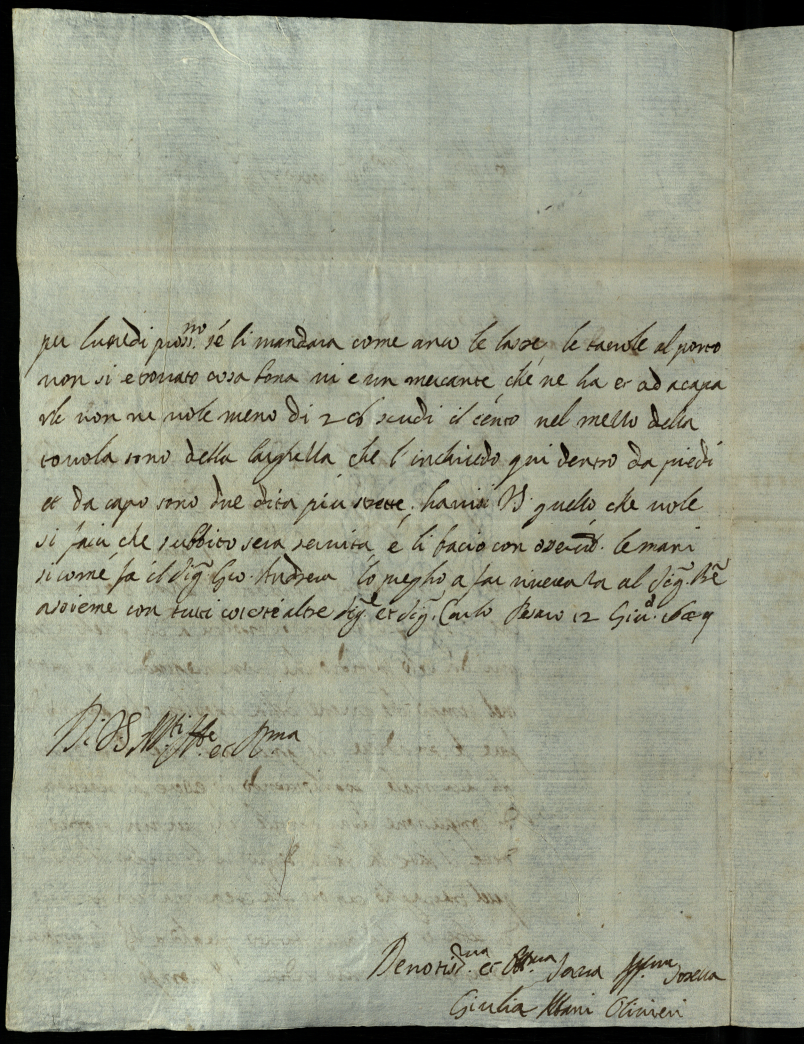 per lunedi pross.mo se li mandara come anco le casse, le tavole al porto
non si e trovato cosa bona vi e un mercante che ne ha et ad acapa
rle non ne vole meno di 26 scudi il cento nel mezzo della
tavola sono della larghezza che l'inchiudo qui dentro da piedi
et da capo sono due dita più strette, VS. quello che vole
si facia che subbito sera servita, e li bacio con le mani
si come fa il Sig.r Gio. Andrea lo pregho a far riverenza al Sig.r
assieme con tutti coteste altre Sig.re et Sig.r Carlo Pesaro 12 Giu.
Di VS M.to Ill.re et
Devotis.ma et Serva Sorella
Giulia Olivieri